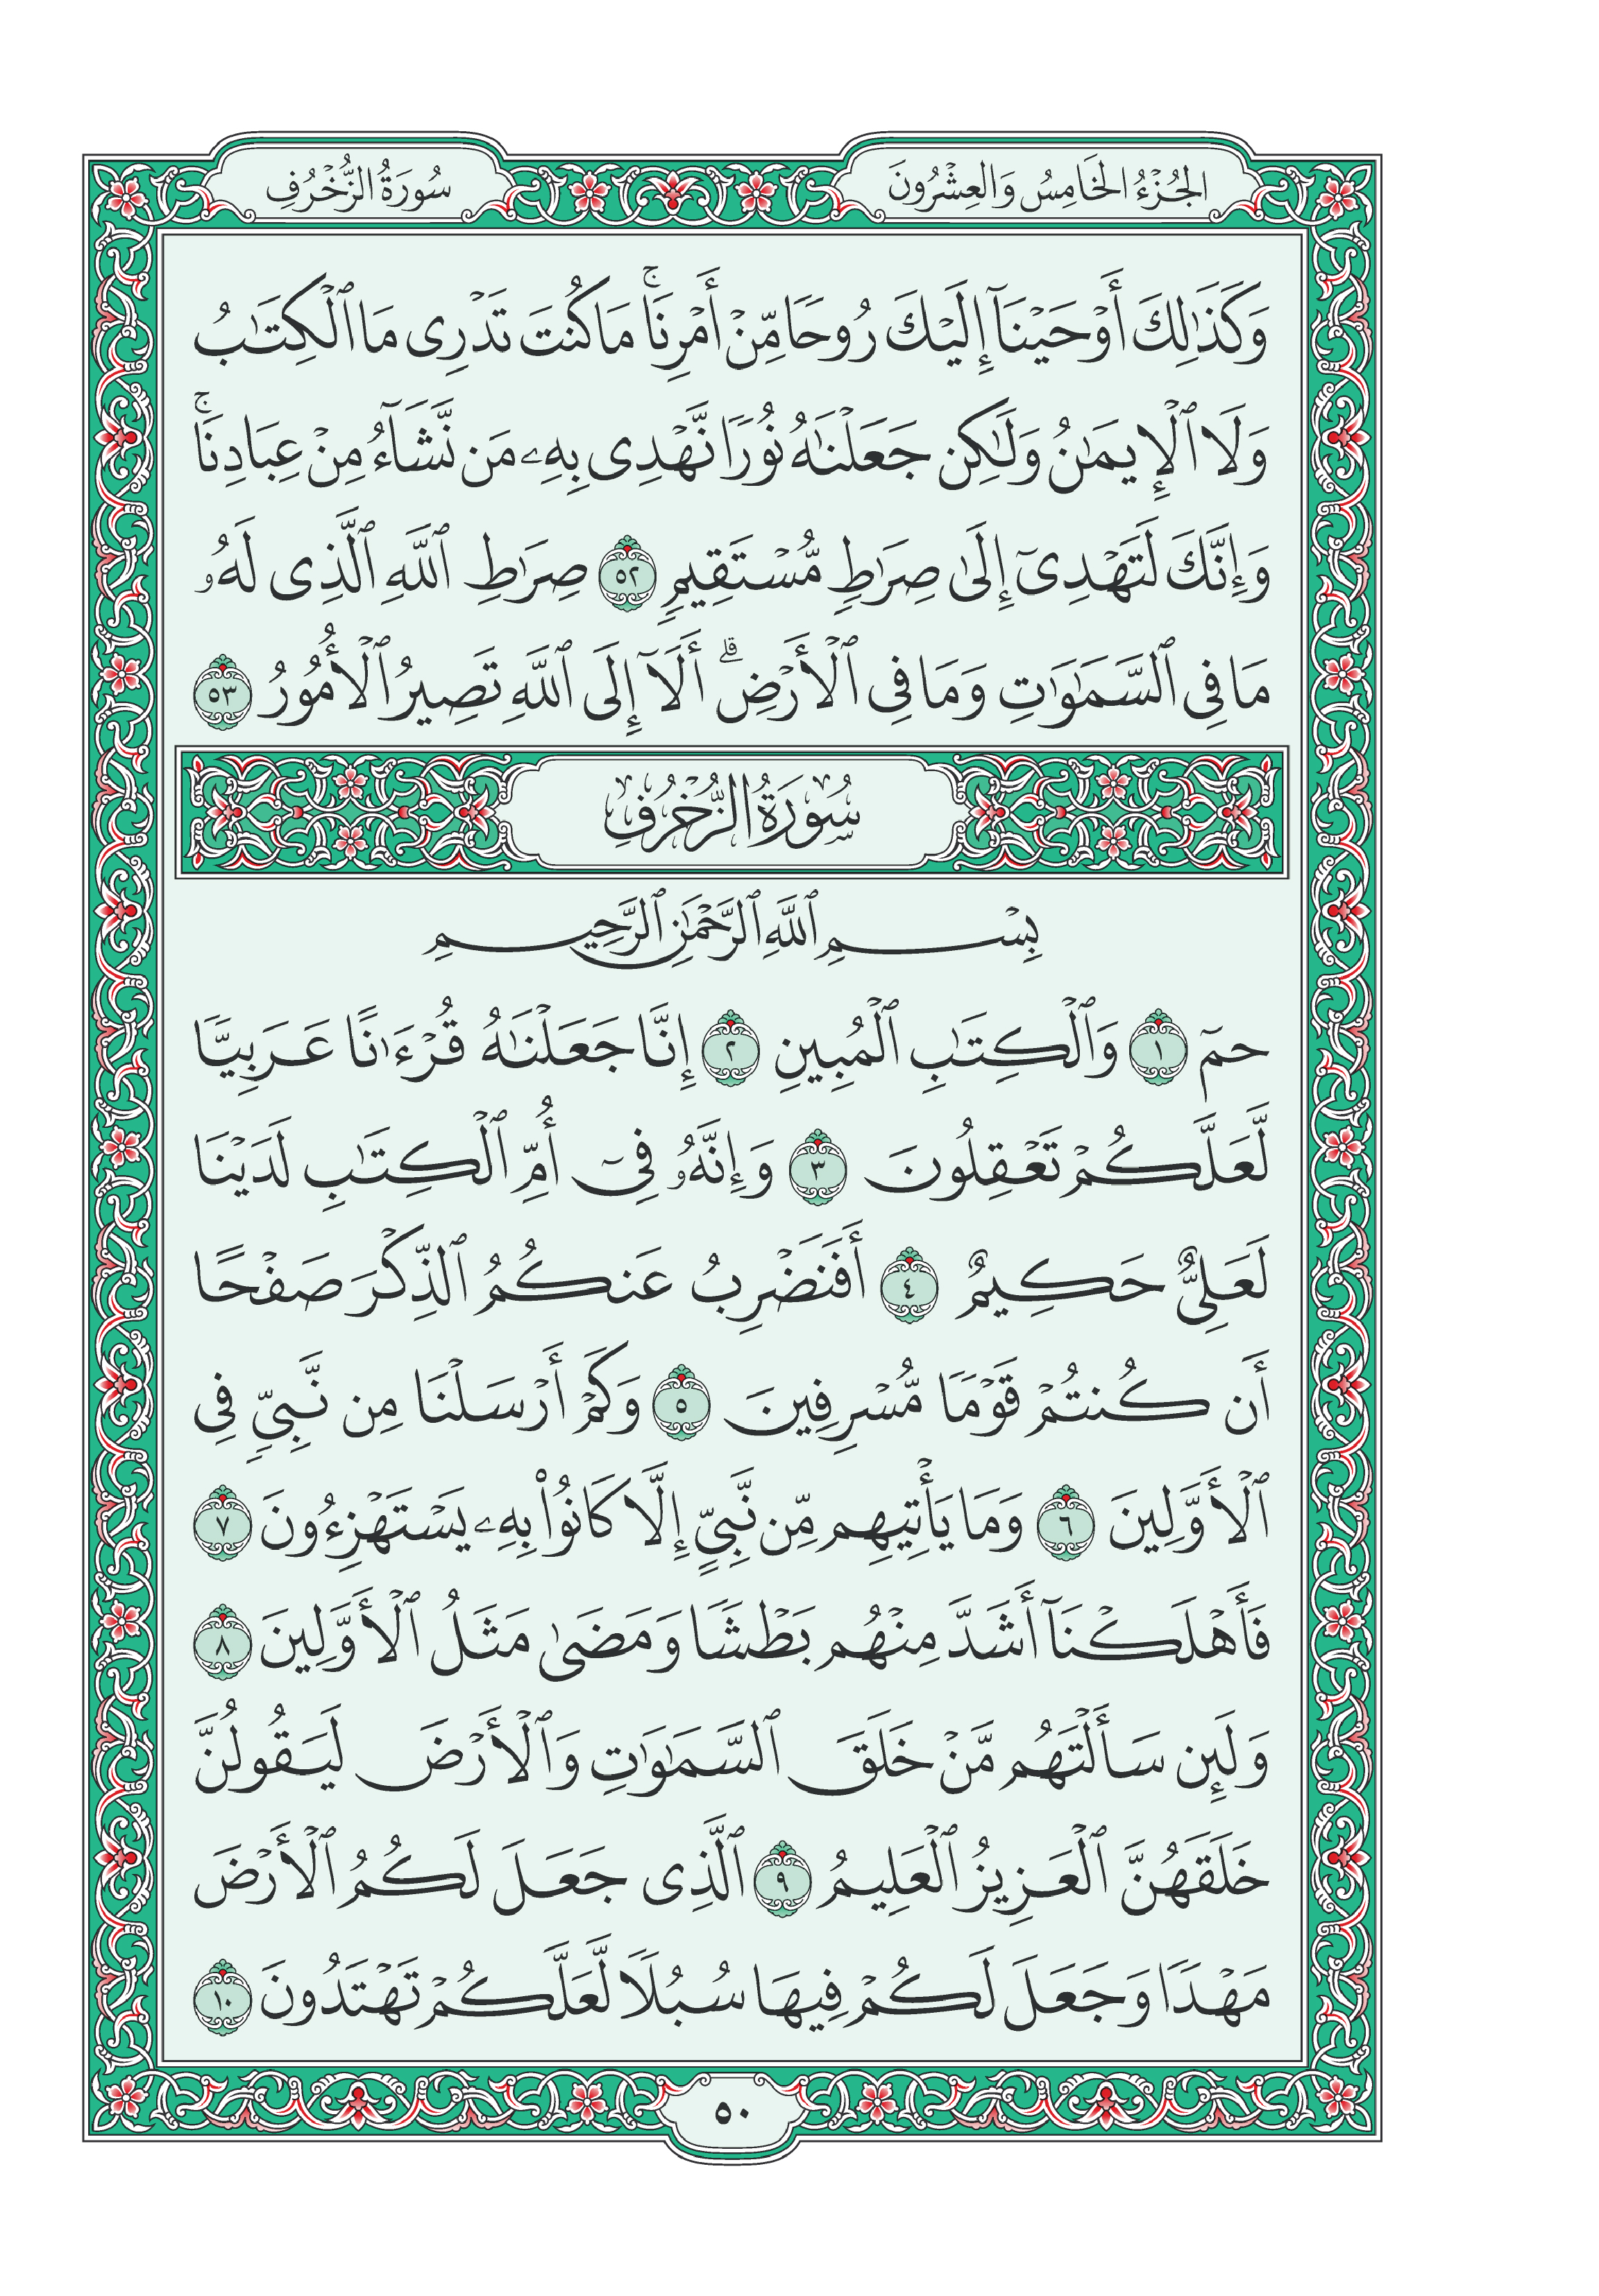 الجُزْءُ الخَامِسُ وَالعِشْرُونَ
سُورَةُ الزُّخْرُفِ
وَكَذَٰلِكَ أَوْحَيْنَآ إِلَيْكَ رُوحًا مِّنْ أَمْرِنَا ۚ مَا كُنتَ تَدْرِى مَا ٱلْكِتَٰبُ
وَلَا ٱلْإِيمَٰنُ وَلَٰكِن جَعَلْنَٰهُ نُورًا نَّهْدِى بِهِۦ مَن نَّشَآءُ مِنْ عِبَادِنَا ۚ
وَإِنَّكَ لَتَهْدِىٓ إِلَىٰ صِرَٰطٍ مُّسْتَقِيمٍ ٥٢ صِرَٰطِ ٱللَّهِ ٱلَّذِى لَهُۥ
مَا فِى ٱلسَّمَٰوَٰتِ وَمَا فِى ٱلْأَرْضِ ۗ أَلَآ إِلَى ٱللَّهِ تَصِيرُ ٱلْأُمُورُ ٥٣
سُورَةُ الزُّخْرُفِ
بِسْمِ ٱللَّهِ ٱلرَّحْمَٰنِ ٱلرَّحِيمِ
حمٓ ١ وَٱلْكِتَٰبِ ٱلْمُبِينِ ٢ إِنَّا جَعَلْنَٰهُ قُرْءَٰنًا عَرَبِيًّا
لَّعَلَّكُمْ تَعْقِلُونَ ٣ وَإِنَّهُۥ فِىٓ أُمِّ ٱلْكِتَٰبِ لَدَيْنَا
لَعَلِىٌّ حَكِيمٌ ٤ أَفَنَضْرِبُ عَنكُمُ ٱلذِّكْرَ صَفْحًا
أَن كُنتُمْ قَوْمًا مُّسْرِفِينَ ٥ وَكَمْ أَرْسَلْنَا مِن نَّبِىٍّ فِى
ٱلْأَوَّلِينَ ٦ وَمَا يَأْتِيهِم مِّن نَّبِىٍّ إِلَّا كَانُوا۟ بِهِۦ يَسْتَهْزِءُونَ ٧
فَأَهْلَكْنَآ أَشَدَّ مِنْهُم بَطْشًا وَمَضَىٰ مَثَلُ ٱلْأَوَّلِينَ ٨
وَلَئِن سَأَلْتَهُم مَّنْ خَلَقَ ٱلسَّمَٰوَٰتِ وَٱلْأَرْضَ لَيَقُولُنَّ
خَلَقَهُنَّ ٱلْعَزِيزُ ٱلْعَلِيمُ ٩ ٱلَّذِى جَعَلَ لَكُمُ ٱلْأَرْضَ
مَهْدًا وَجَعَلَ لَكُمْ فِيهَا سُبُلًا لَّعَلَّكُمْ تَهْتَدُونَ ١٠
٥٠